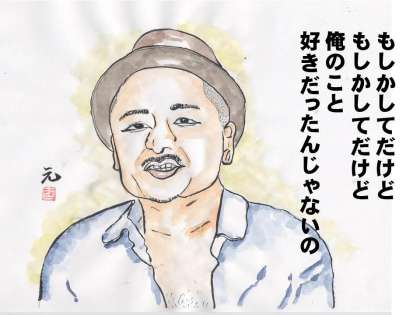 もしかしてだけど
もしかしてだけど
俺のこと
好きだったんじゃないの
元